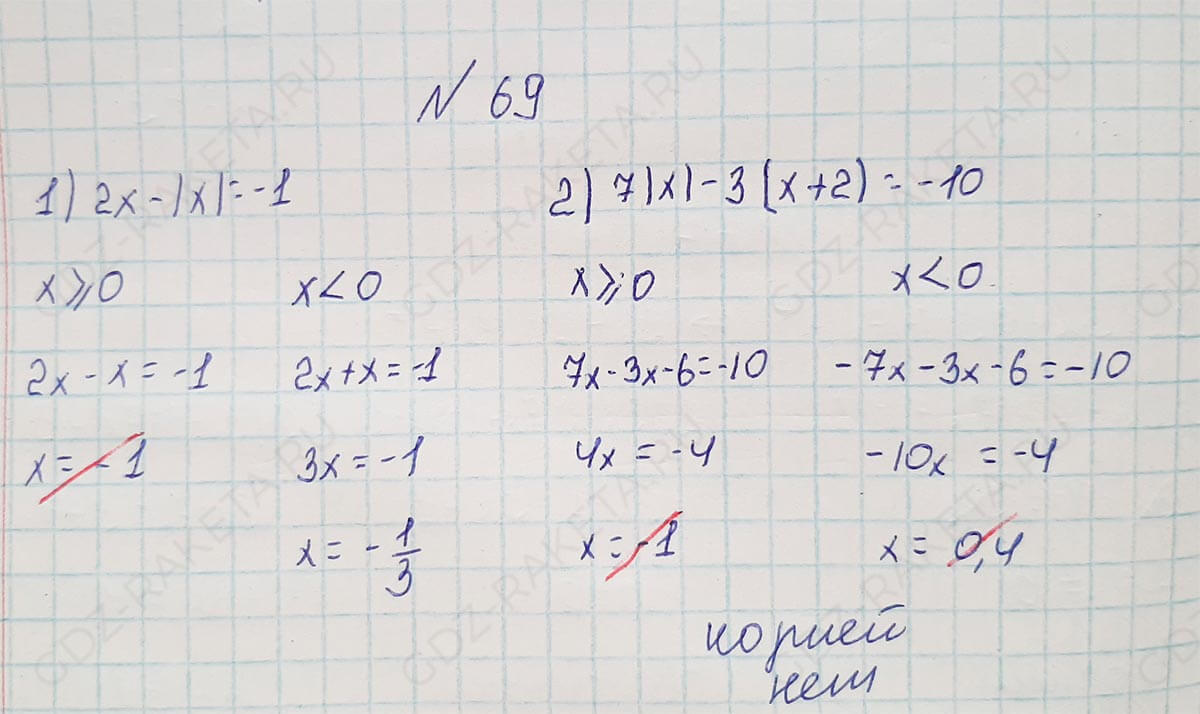 № 69
1) 2x - |x| = -1
x ⩾ 0 x < 0
2x - x = -1 2x + x = -1
x = -1 3x = -1
x = - 1/3
2) 7|x| - 3(x+2) = -10
x ⩾ 0 x < 0
7x - 3x - 6 = -10 -7x - 3x - 6 = -10
4x = -4 -10x = -4
x = -1 x = 0,4
корней
нет
GDZ-RAKETA.RU